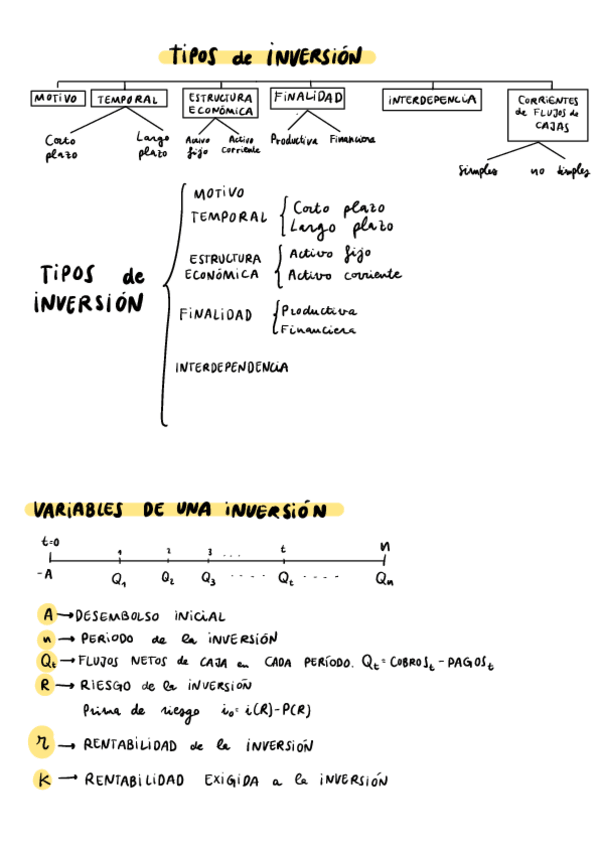 TIPOS de INVERSIÓN
MOTIVO TEMPORAL ESTRUCTURA ECONÓMICA FINALIDAD INTERDEPENCIA CORRIENTES de FLUJOS de CAJAS
Corto plazo Largo plazo Activo fijo Activo corriente Productiva Financiera
Simples no simples
MOTIVO
TEMPORAL Corto plazo
Largo plazo
TIPOS de INVERSIÓN
ESTRUCTURA ECONÓMICA Activo fijo
Activo corriente
FINALIDAD Productiva
Financiera
INTERDEPENDENCIA
VARIABLES DE UNA INVERSIÓN
t=0 1 2 3 ... t n
-A Q₁ Q₂ Q₃ ---- Qt ---- Qn
A → DESEMBOLSO INICIAL
n → PERIODO de la INVERSIÓN
Qt → FLUJOS NETOS de CAJA en CADA PERÍODO. Qt = COBROSt - PAGOSt
R → RIESGO de la INVERSIÓN
Prima de riesgo i₀= i(R)-P(R)
r → RENTABILIDAD de la INVERSIÓN
K → RENTABILIDAD EXIGIDA a la INVERSIÓN